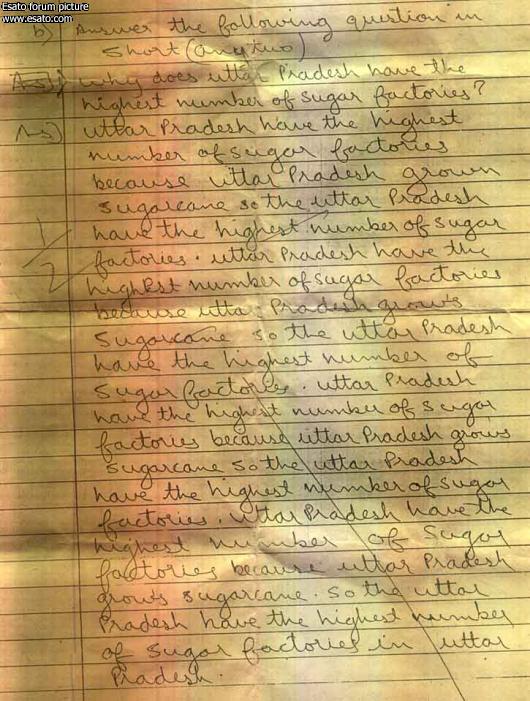 Esato forum picture
www.esato.com
b) Answer the following question in
short (any two)
Ans) why does uttar Pradesh have the
highest number of sugar factories?
Ans) uttar Pradesh have the highest
number of sugar factories
because uttar Pradesh grown
sugarcane so the uttar Pradesh
have the highest number of sugar
1/2
factories. uttar Pradesh have the
highest number of sugar factories
because uttar Pradesh grows
sugarcane so the uttar Pradesh
have the highest number of
sugar factories. uttar Pradesh
have the highest number of sugar
factories because uttar Pradesh grows
sugarcane so the uttar Pradesh
have the highest number of sugar
factories. uttar Pradesh have the
highest number of sugar
factories because uttar Pradesh
grows sugarcane. so the uttar
Pradesh have the highest number
of sugar factories in uttar
Pradesh.